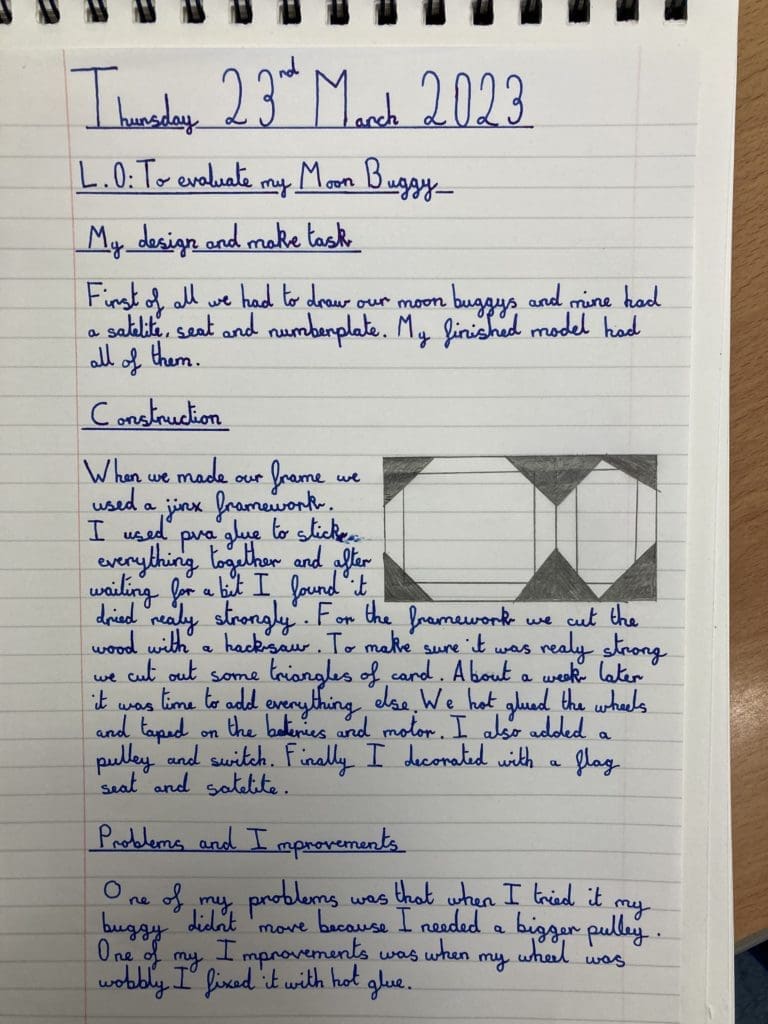 Thursday 23rd March 2023
L.O: To evaluate my Moon Buggy
My design and make task
First of all we had to draw our moon buggys and mine had
a satelite, seat and numberplate. My finished model had
all of them.
Construction
When we made our frame we
used a jinx framework.
I used pva glue to stick
everything together and after
waiting for a bit I found it
dried realy strongly. For the framework we cut the
wood with a hacksaw. To make sure it was realy strong
we cut out some triangles of card. About a week later
it was time to add everything else. We hot glued the wheels
and taped on the bateries and motor. I also added a
pulley and switch. Finally I decorated with a flag
seat and satelite.
Problems and Improvements
One of my problems was that when I tried it my
buggy didnt move because I needed a bigger pulley.
One of my Improvements was when my wheel was
wobbly I fixed it with hot glue.